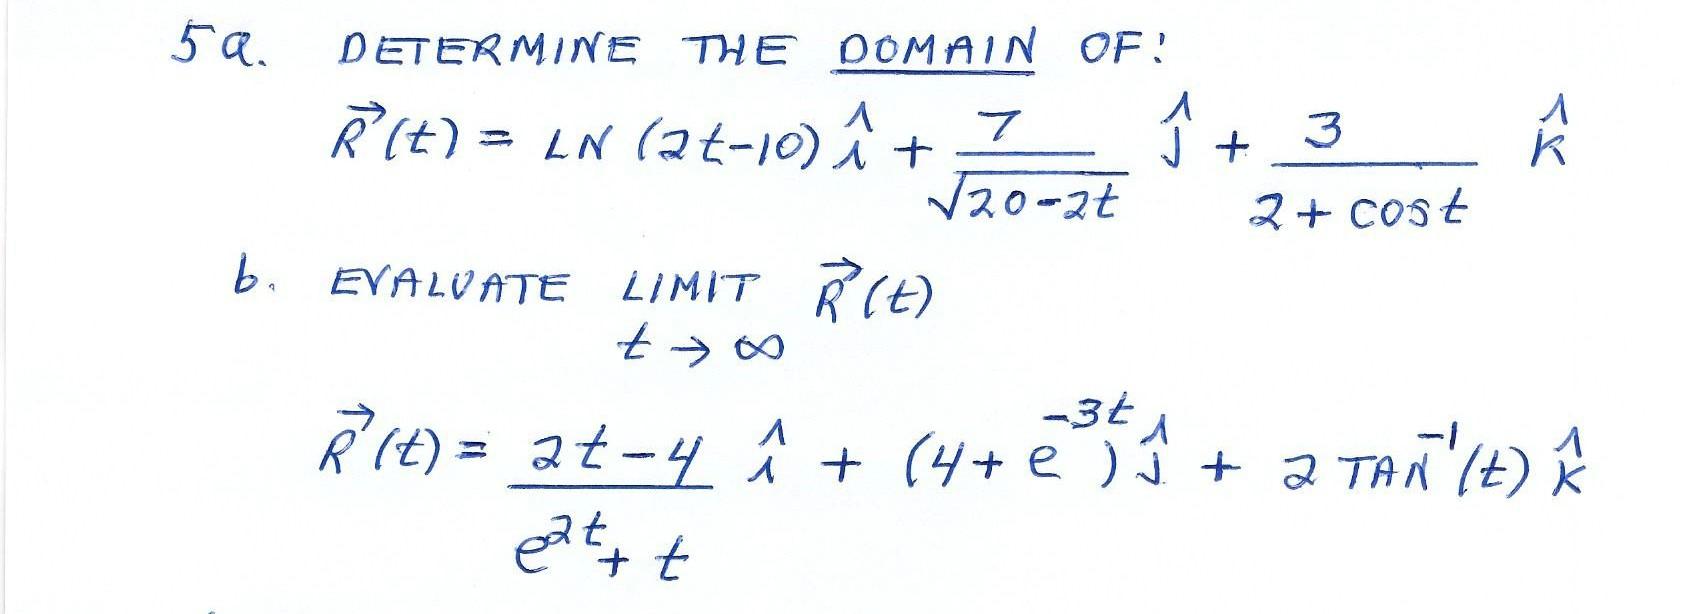 5a. DETERMINE THE DOMAIN OF:
R⃗(t) = LN (2t-10) î + 7/√(20-2t) ĵ + 3/(2 + cos t) k̂
b. EVALUATE LIMIT R⃗(t)
t → ∞
R⃗(t) = (2t-4)/(e^(2t) + t) î + (4 + e^(-3t)) ĵ + 2 TAN⁻¹(t) k̂